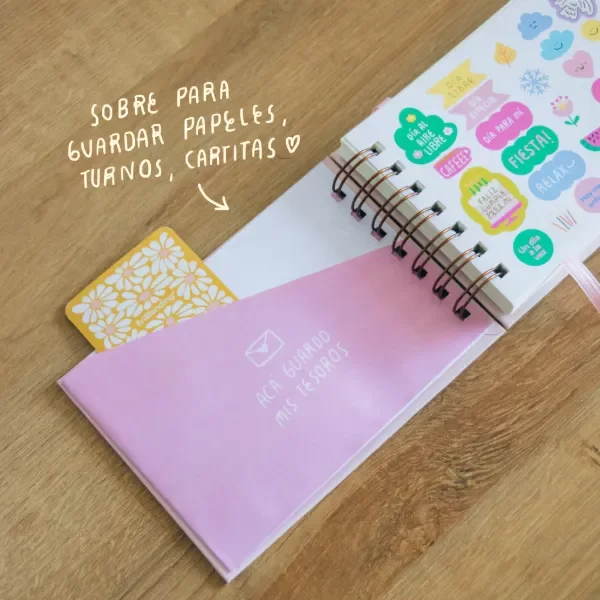 SOBRE PARA
GUARDAR PAPELES,
TURNOS, CARTITAS
ACÁ GUARDO
MIS TESOROS
DÍA
LIBRE
DÍA AL
AIRE
LIBRE
CAFECI
DÍA PARA MÍ
FIESTA!
RELAX
FELIZ
CUMPLE
PARA MÍ
Un día
a la
vez